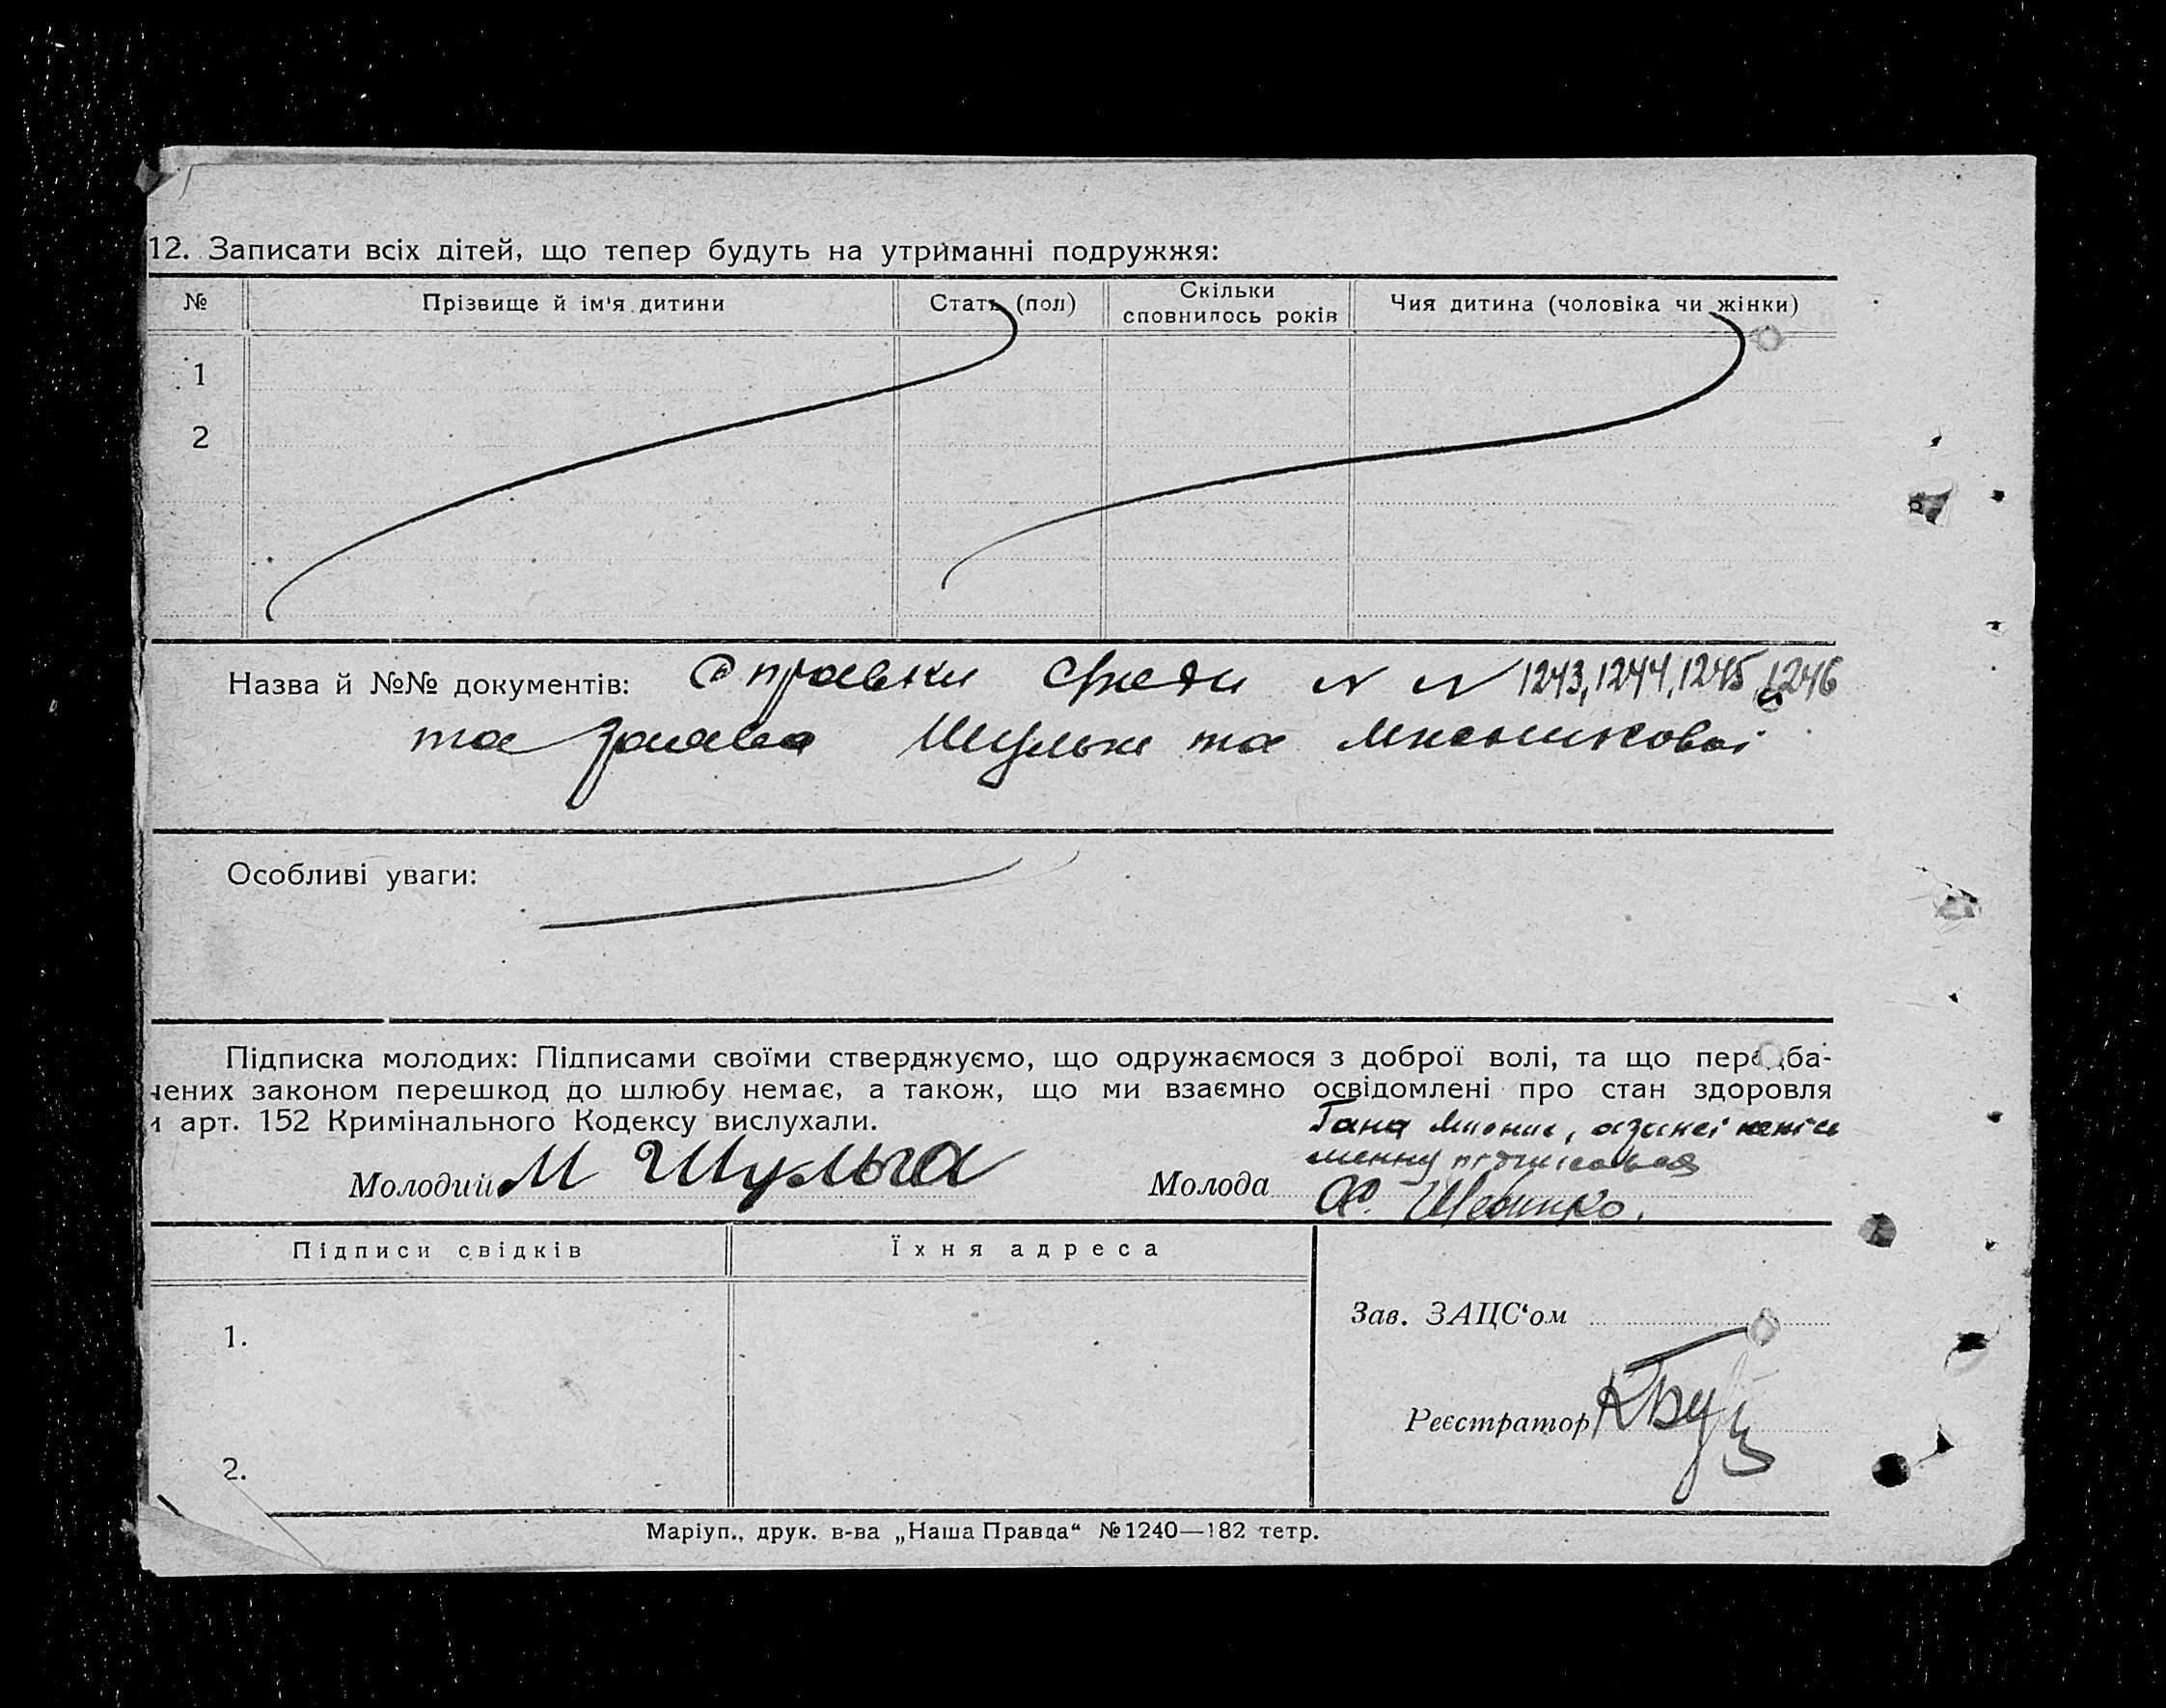 12. Записати всіх дітей, що тепер будуть на утриманні подружжя:
№ Прізвище й ім'я дитини Стать (пол) Скільки сповнилось років Чия дитина (чоловіка чи жінки)
1
2
Назва й №№ документів: Справки N N 1243, 1244, 1245, 1246
та заява Шульги та
Особливі уваги:
Підписка молодих: Підписами своїми стверджуємо, що одружаємося з доброї волі, та що передба-
чених законом перешкод до шлюбу немає, а також, що ми взаємно освідомлені про стан здоровля
и арт. 152 Кримінального Кодексу вислухали.
Молодий М Шульга
Молода
Підписи свідків Їхня адреса
Зав. ЗАЦС'ом
1.
Реєстратор
2.
Маріуп., друк. в-ва „Наша Правда“ №1240—182 тетр.